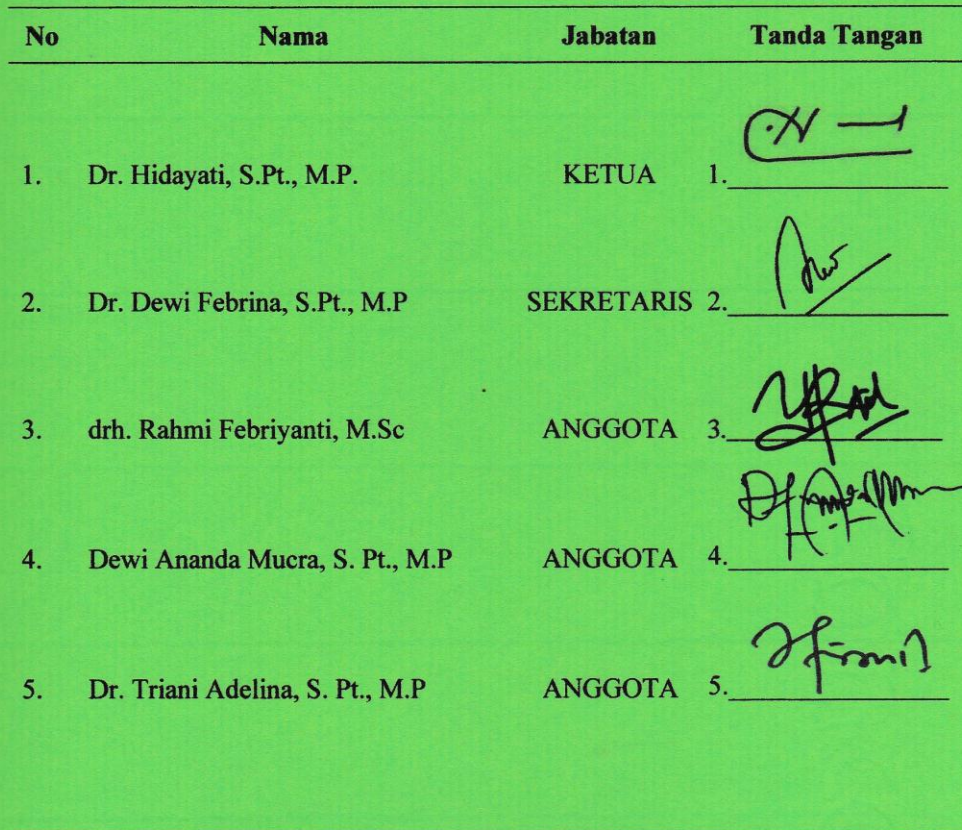 No Nama Jabatan Tanda Tangan
1. Dr. Hidayati, S.Pt., M.P. KETUA 1.
2. Dr. Dewi Febrina, S.Pt., M.P SEKRETARIS 2.
3. drh. Rahmi Febriyanti, M.Sc ANGGOTA 3.
4. Dewi Ananda Mucra, S. Pt., M.P ANGGOTA 4.
5. Dr. Triani Adelina, S. Pt., M.P ANGGOTA 5.